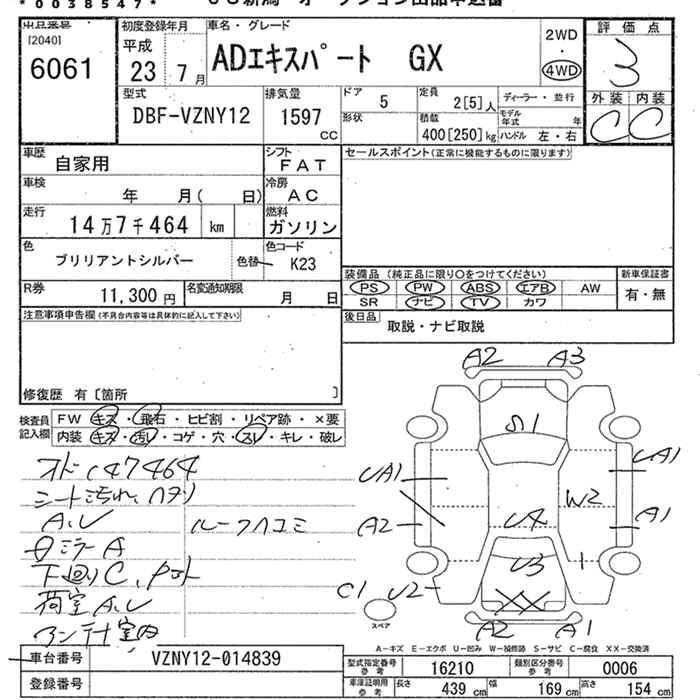 *0038547*
[2040]
6061
初度登録年月
平成
23 7月
車名・グレード
ADエキスパート GX
2WD
・
4WD
評価点
3
外装 内装
C C
型式
DBF-VZNY12
排気量
1597
cc
ドア
5
形状
定員
2[5]人
積載
400[250]kg
ディーラー・並行
モデル年式 年
ハンドル 左・右
車歴
自家用
シフト
FAT
車検
年 月( 日)
冷房
AC
走行
14万7千464 km
燃料
ガソリン
色
ブリリアントシルバー
色替
色コード
K23
R券
11,300円
名変通知期限
月 日
セールスポイント(正常に機能するものに限ります)
装備品(純正品に限り〇をつけてください)
PS PW ABS エアB AW
SR ナビ TV カワ
新車保証書
有・無
後日品
取説・ナビ取説
注意事項申告欄(不具合内容等は具体的に記入して下さい)
修復歴 有[箇所 ]
検査員記入欄
FW キズ・飛石・ヒビ割・リペア跡・×要
内装 キズ・汚れ・コゲ・穴・スレ・キレ・破レ
オド147464
シート汚れ、ハタリ
A.U
ルーフハコミ
ミラーA
下廻りC、
荷室A.U
A2 A3
S1
UA1 UA1
A2 A1
W2
U4
U3 1
C1 U2
XX
A2 A1
スペア
A-キズ E-エクボ U-凹み W-補修跡 S-サビ C-腐食 XX-交換済
車台番号
VZNY12-014839
登録番号
型式指定番号
参考
16210
類別区分番号
参考
0006
車庫証明用
参考
長さ
439 cm
幅
169 cm
高さ
154 cm